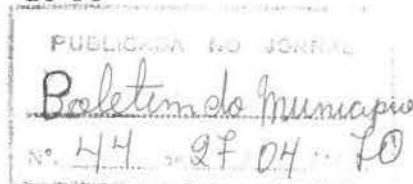 PUBLICADA NO JORNAL
Boletim do Municipio
Nº. 44 de 27 04 70